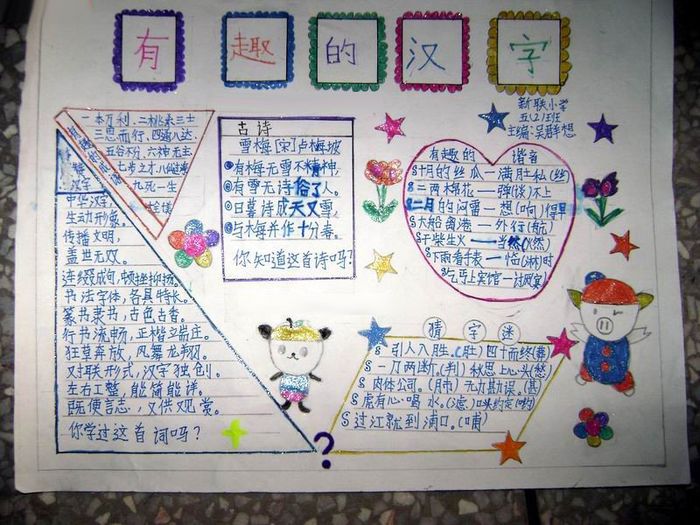 有趣的汉字
新联小学
五(2)班
主编:吴群想
一本万利、二桃杀三士
三思而行、四通八达、
五谷不分、六神无主
七步之才、八仙过海
九死一生
汉字
中华汉字,
生动形象。
传播文明,
盖世无双。
连缀成句,顿挫抑扬。
书法字体,各具特长。
篆书隶书,古色古香。
行书流畅,正楷端庄。
狂草奔放,凤翥龙翔。
对联形式,汉字独创。
左右工整,能简能详。
既便言志,又供观赏。
你学过这首词吗?
古诗
雪梅[宋]卢梅坡
有梅无雪不精神,
有雪无诗俗了人。
日暮诗成天又雪,
与梅并作十分春。
你知道这首诗吗?
有趣的谐音
十月的丝瓜—满肚私(丝)
三两棉花——弹(谈)不上
二月的闷雷—想(响)得早
大船离港——外行(航)
干柴生火——当然(燃)
下雨看表—临(淋)时
乞丐上宾馆—讨
猜字谜
引人入胜。(胜)四十而终(毒)
一刀两断,(判)秋思上心头(愁)
肉体公司。(月市)
虎有心喝水。(滤)口头约定(哟)
过江就到浦口。(哺)
?